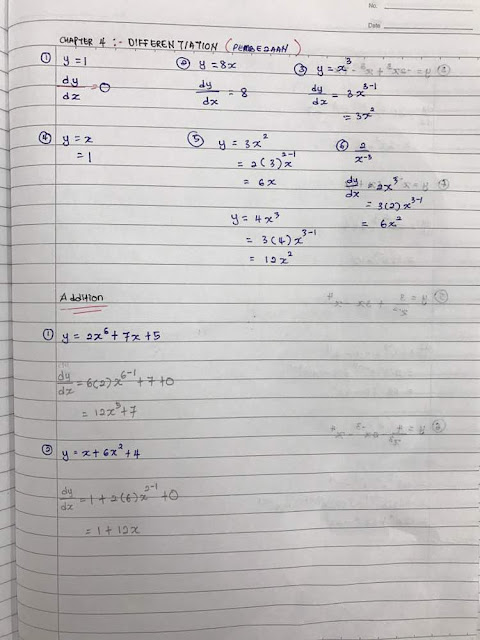 No.
Date
CHAPTER 4 :- DIFFERENTIATION (PEMBEZAAN)
① y = 1
dy/dx = 0
② y = 8x
dy/dx = 8
③ y = x³
dy/dx = 3x³⁻¹
= 3x²
④ y = x
= 1
⑤ y = 3x²
= 2(3)x²⁻¹
= 6x
y = 4x³
= 3(4)x³⁻¹
= 12x²
⑥ 2/x⁻³
dy/dx = 2x³
= 3(2)x³⁻¹
= 6x²
Addition
① y = 2x⁶ + 7x + 5
dy/dx = 6(2)x⁶⁻¹ + 7 + 0
= 12x⁵ + 7
② y = x + 6x² + 4
dy/dx = 1 + 2(6)x²⁻¹ + 0
= 1 + 12x